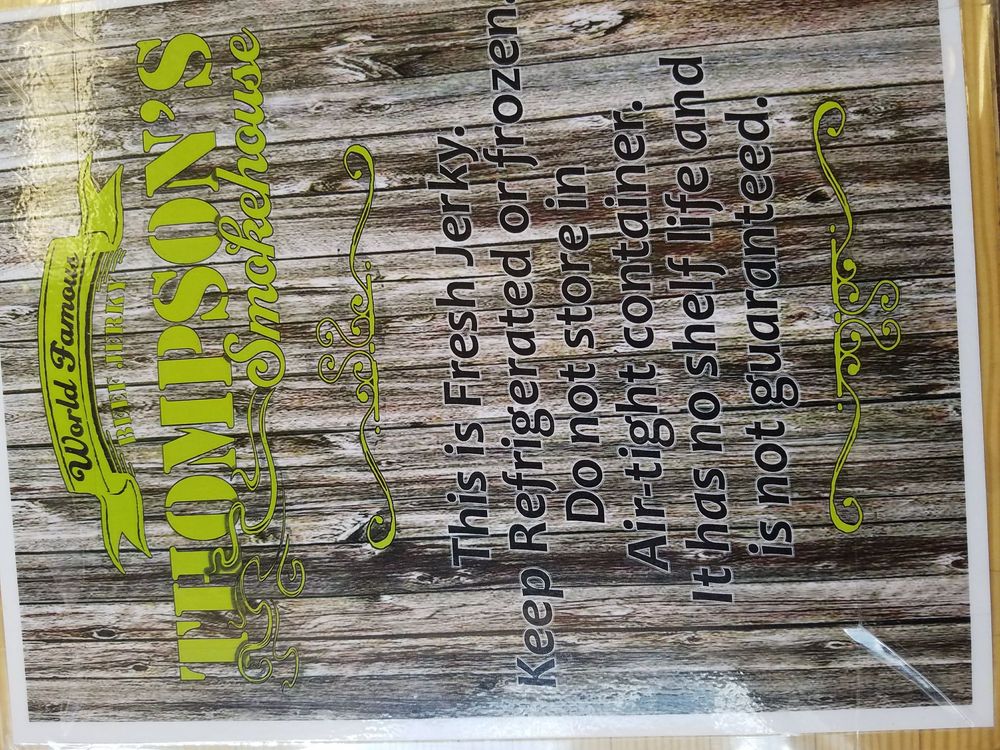 World Famous
BEEF JERKY
THOMPSON'S
Smokehouse
This is Fresh Jerky.
Keep Refrigerated or frozen.
Do not store in
Air-tight container.
It has no shelf life and
is not guaranteed.